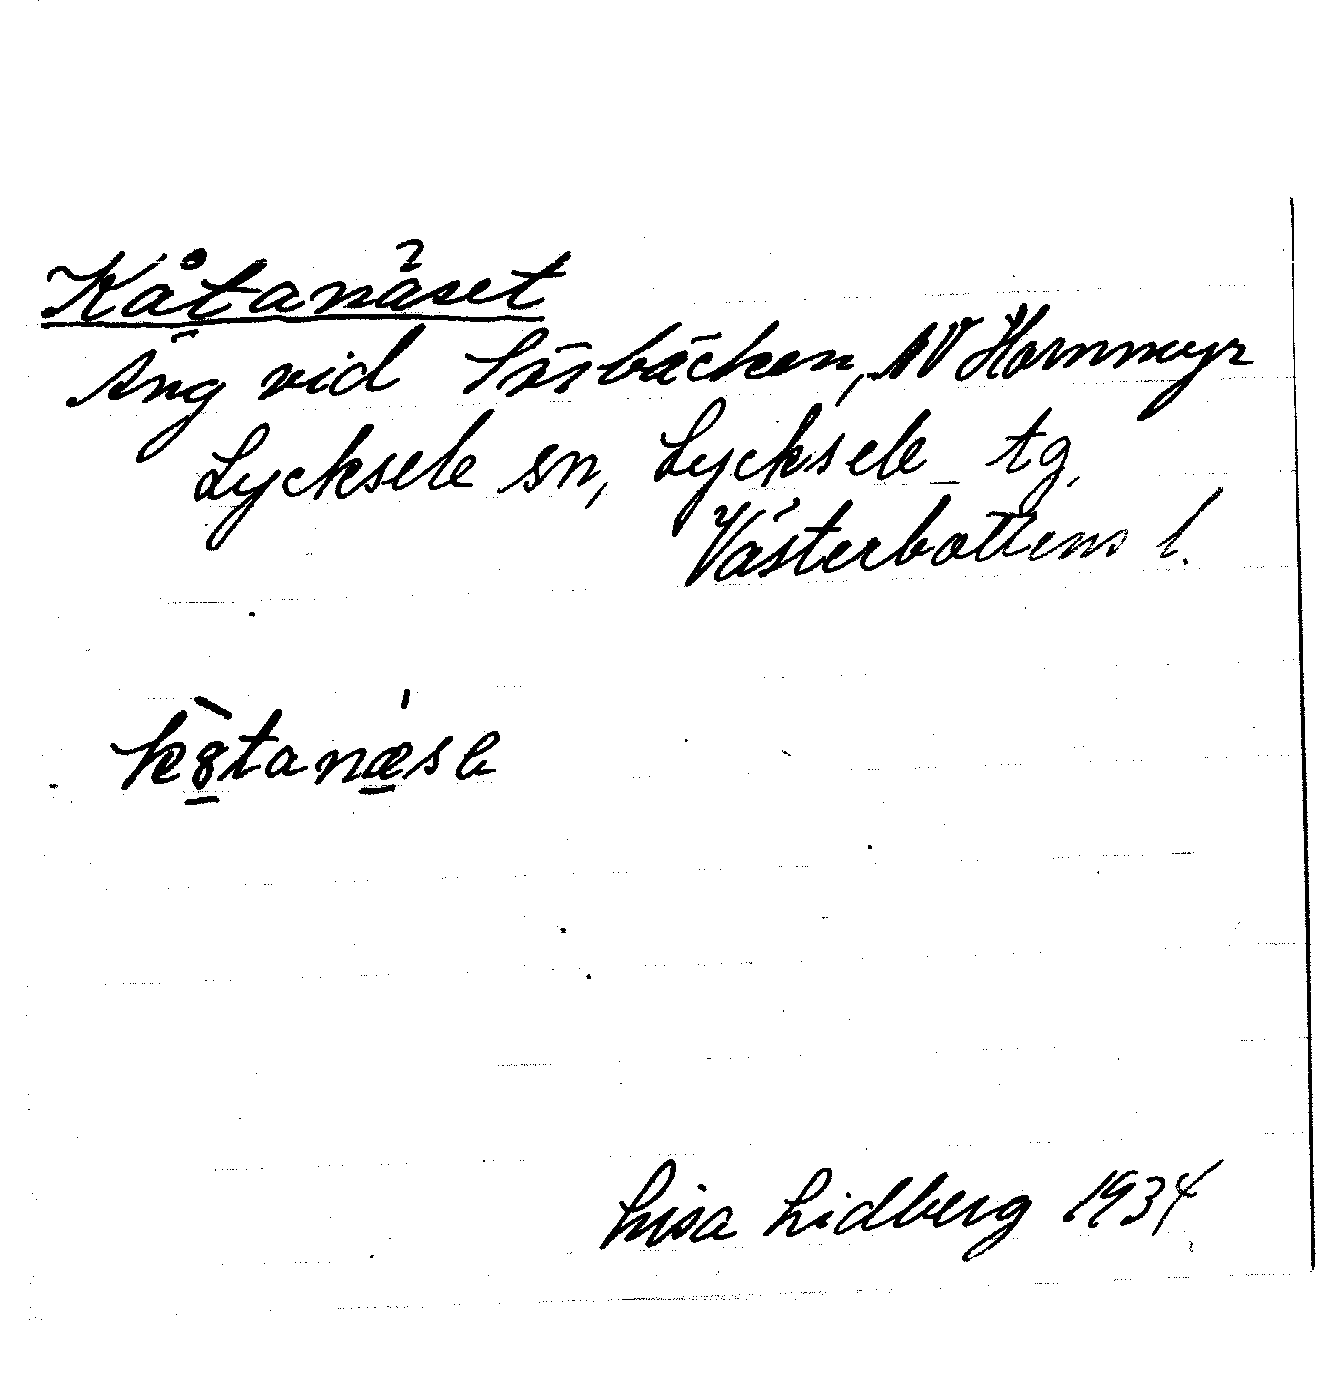 Kåtanäset
Äng vid Lösbäcken, NV Hornmyr
Lycksele sn, Lycksele tg.
Västerbottens l.
kȣ̀tanǽse
Lisa Lidberg 1934